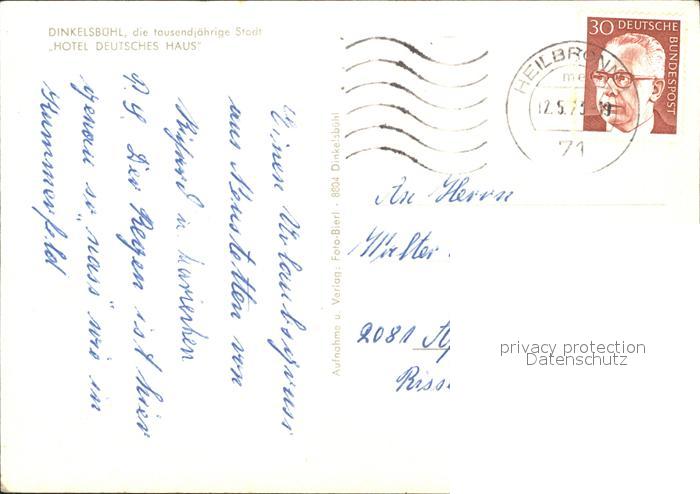 DINKELSBÜHL, die tausendjährige Stadt
„HOTEL DEUTSCHES HAUS"
Einen Urlaubsgruss
aus Neustetten von
Richard u. Mariechen
P.S. Der Regen ist hier
genau so „nass" wie in
Kummerfeld
Aufnahme u. Verlag: Foto-Bierl · 8804 Dinkelsbühl
30 DEUTSCHE
BUNDESPOST
HEILBRONN
71
An Herrn
Walter
2081
privacy protection
Datenschutz